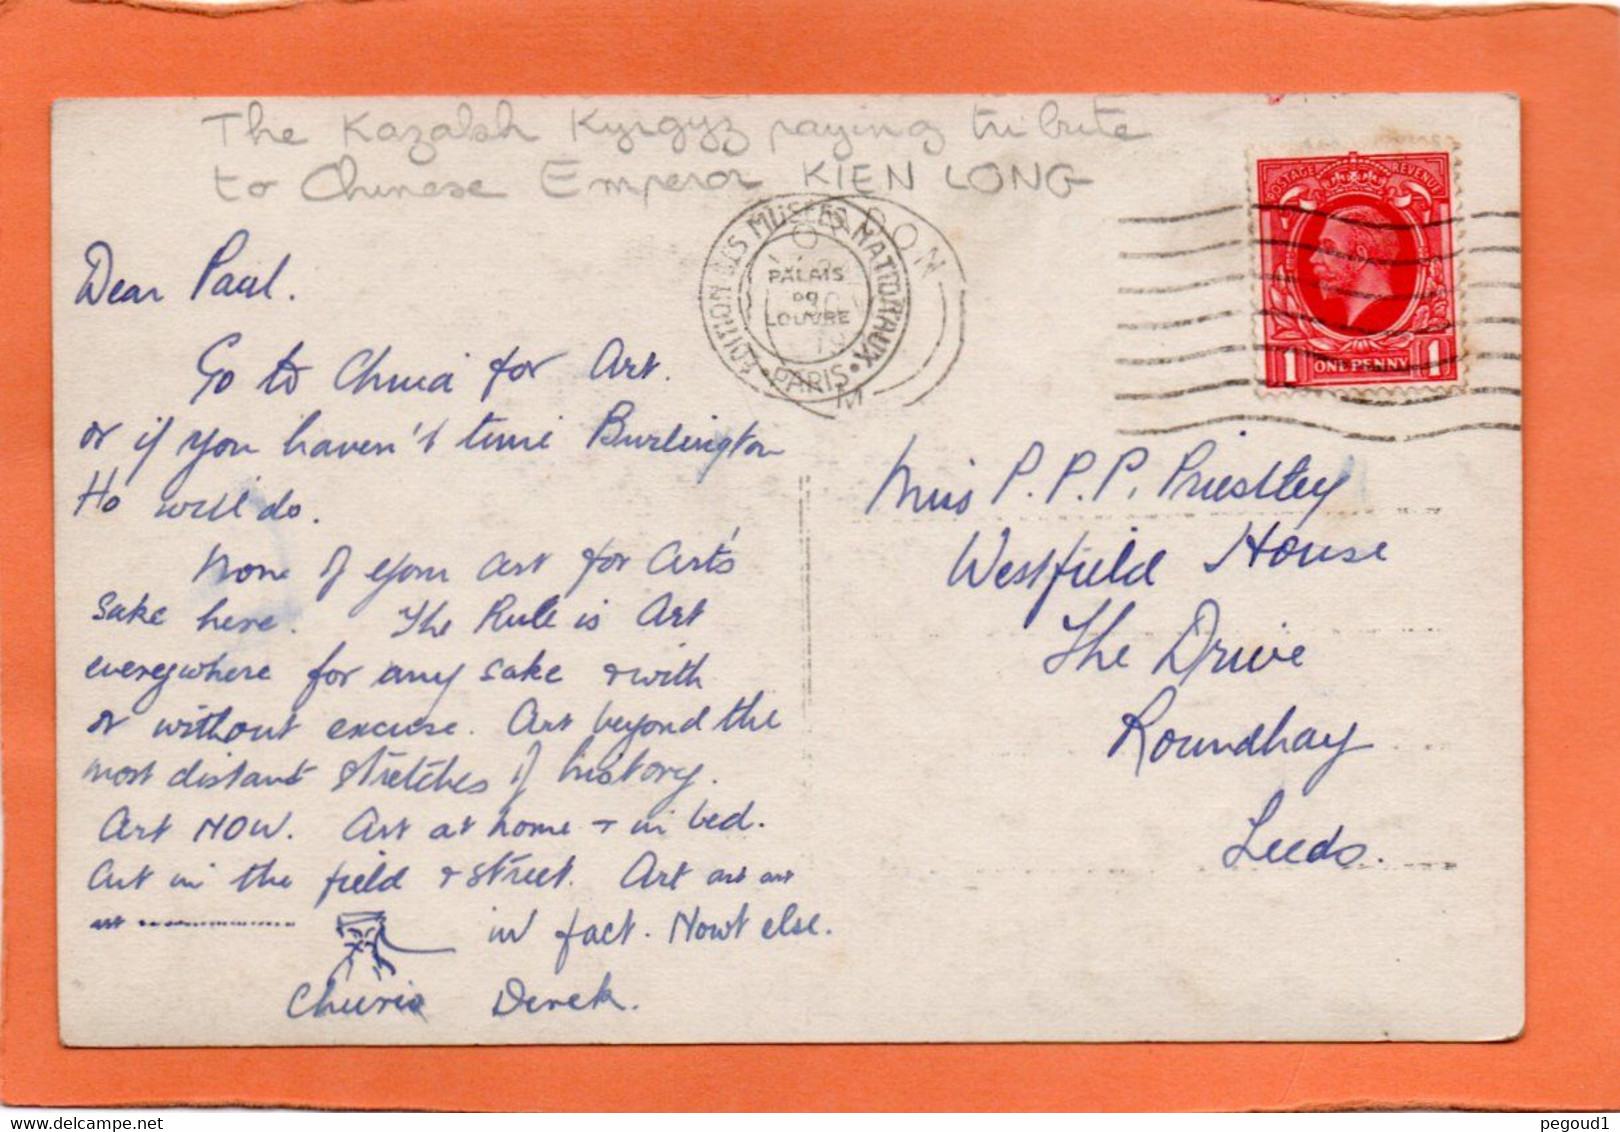 The Kazakh Kyrgyz paying tribute
to Chinese Emperor KIEN LONG
Dear Paul.
Go to China for Art.
or if you haven't time Burlington
Ho will do.
None of your art for art's
sake here. The Rule is Art
everywhere for any sake & with
or without excuse. Art beyond the
most distant stretches of history.
Art NOW. Art at home & in bed.
Art in the field & street. Art art art
art
in fact. Nowt else.
Derek.
EDITION DES MUSEES NATIONAUX • PARIS •
PALAIS
DU
LOUVRE
LONDON
POSTAGE REVENUE
1 ONE PENNY 1
Miss P.P.P. Priestley
Westfield House
The Drive
Roundhay
Leeds.
pegoud1